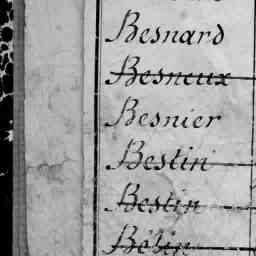 Besnard
Besneux
Besnier
Bestin
Bestin